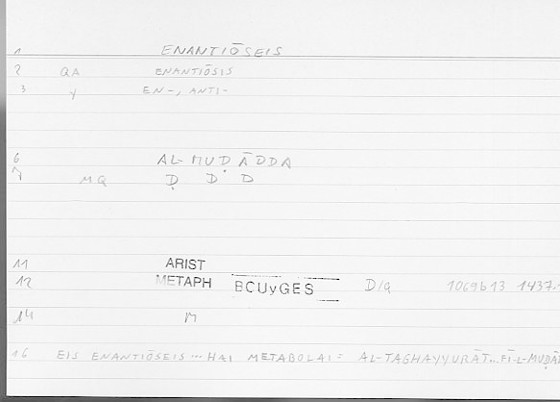 1 ENANTIŌSEIS
2 QA ENANTIŌSIS
3 Y EN-, ANTI-
6 AL-MUḌĀDDA
7 MQ Ḍ D D
11 ARIST
12 METAPH BCUyGES D/a 1069b13 1437.
14 M
16 EIS ENANTIŌSEIS ... HAI METABOLAI = AL-TAGHAYYURĀT ... FĪ-L-MUḌĀ